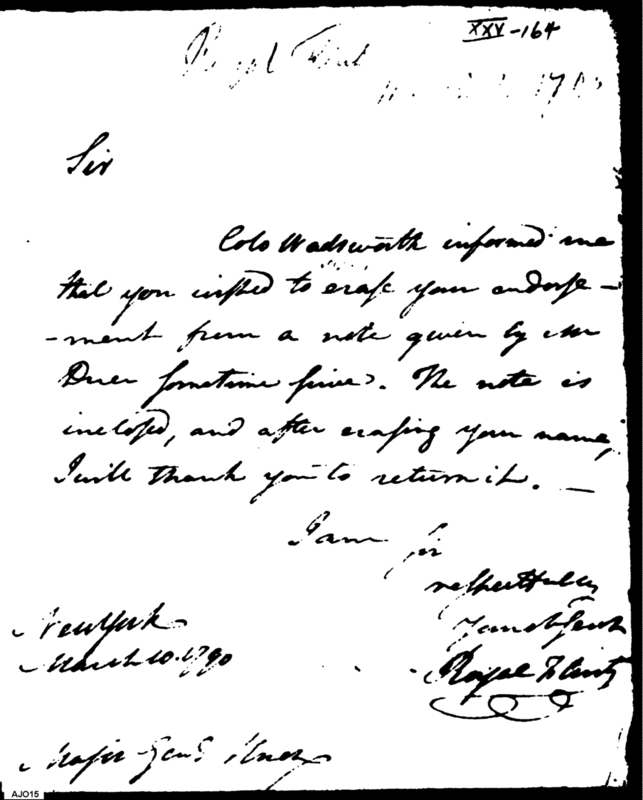 XXV-164
Royal Flint
1790
Sir
Colo Wadsworth informed me
that you wished to erase your endorse-
-ment from a note given by Mr
Duer sometime since. The note is
inclosed, and after erasing your name,
I will thank you to return it. —
I am Sir
respectfully
Your obt Servt
Royal Flint
New York
March 10. 1790
Major Genl Knox
AJO15